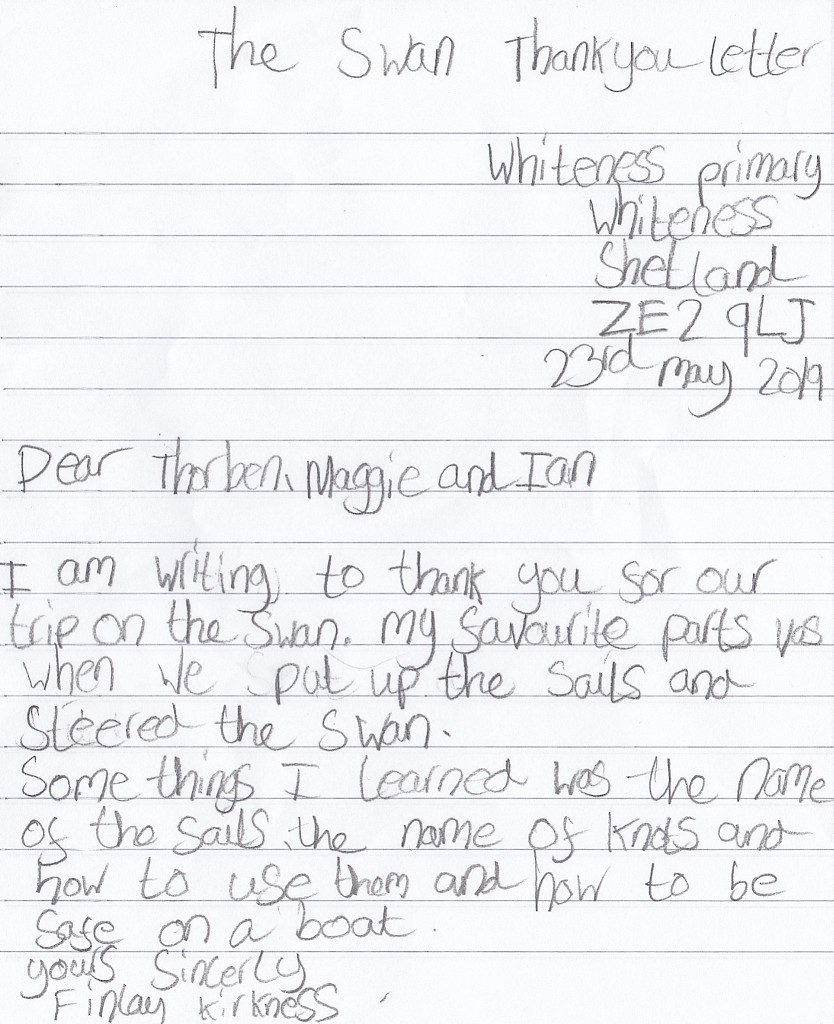 The Swan Thankyou letter
Whiteness primary
Whiteness
Shetland
ZE2 9LJ
23rd may 2019
Dear Thorben, Maggie and Ian
I am writing to thank you for our
trip on the Swan. My favourite parts was
when we put up the sails and
Steered the Swan.
Some things I learned was the name
of the sails, the name of knots and
how to use them and how to be
safe on a boat.
yours Sincerly
Finlay Kirkness